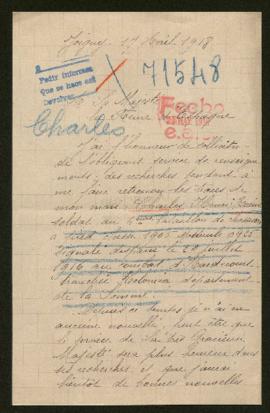 Joigny 17 Avril 1918
Pedir informes
que se hace así
devolver
71548
A Sa Majesté
la Reine d'Espagne
Fecho
Charles
J'ai l'honneur de solliciter
de l'obligeant service de renseigne
ments, des recherches tendant à
me faire retrouver les traces de
mon mari Charles Henri
soldat au bataillon de chasseurs
à pied classe 1903 Matricule
signalé disparu le 20 juillet
1916 au combat d'Hardecourt
tranchée département
de la Somme
Depuis ce temps je n'ai eu
aucune nouvelle, peut être que
le service de Sa très Gracieuse
Majesté sera plus heureux dans
ses recherches, et que j'aurai
bientôt de bonnes nouvelles